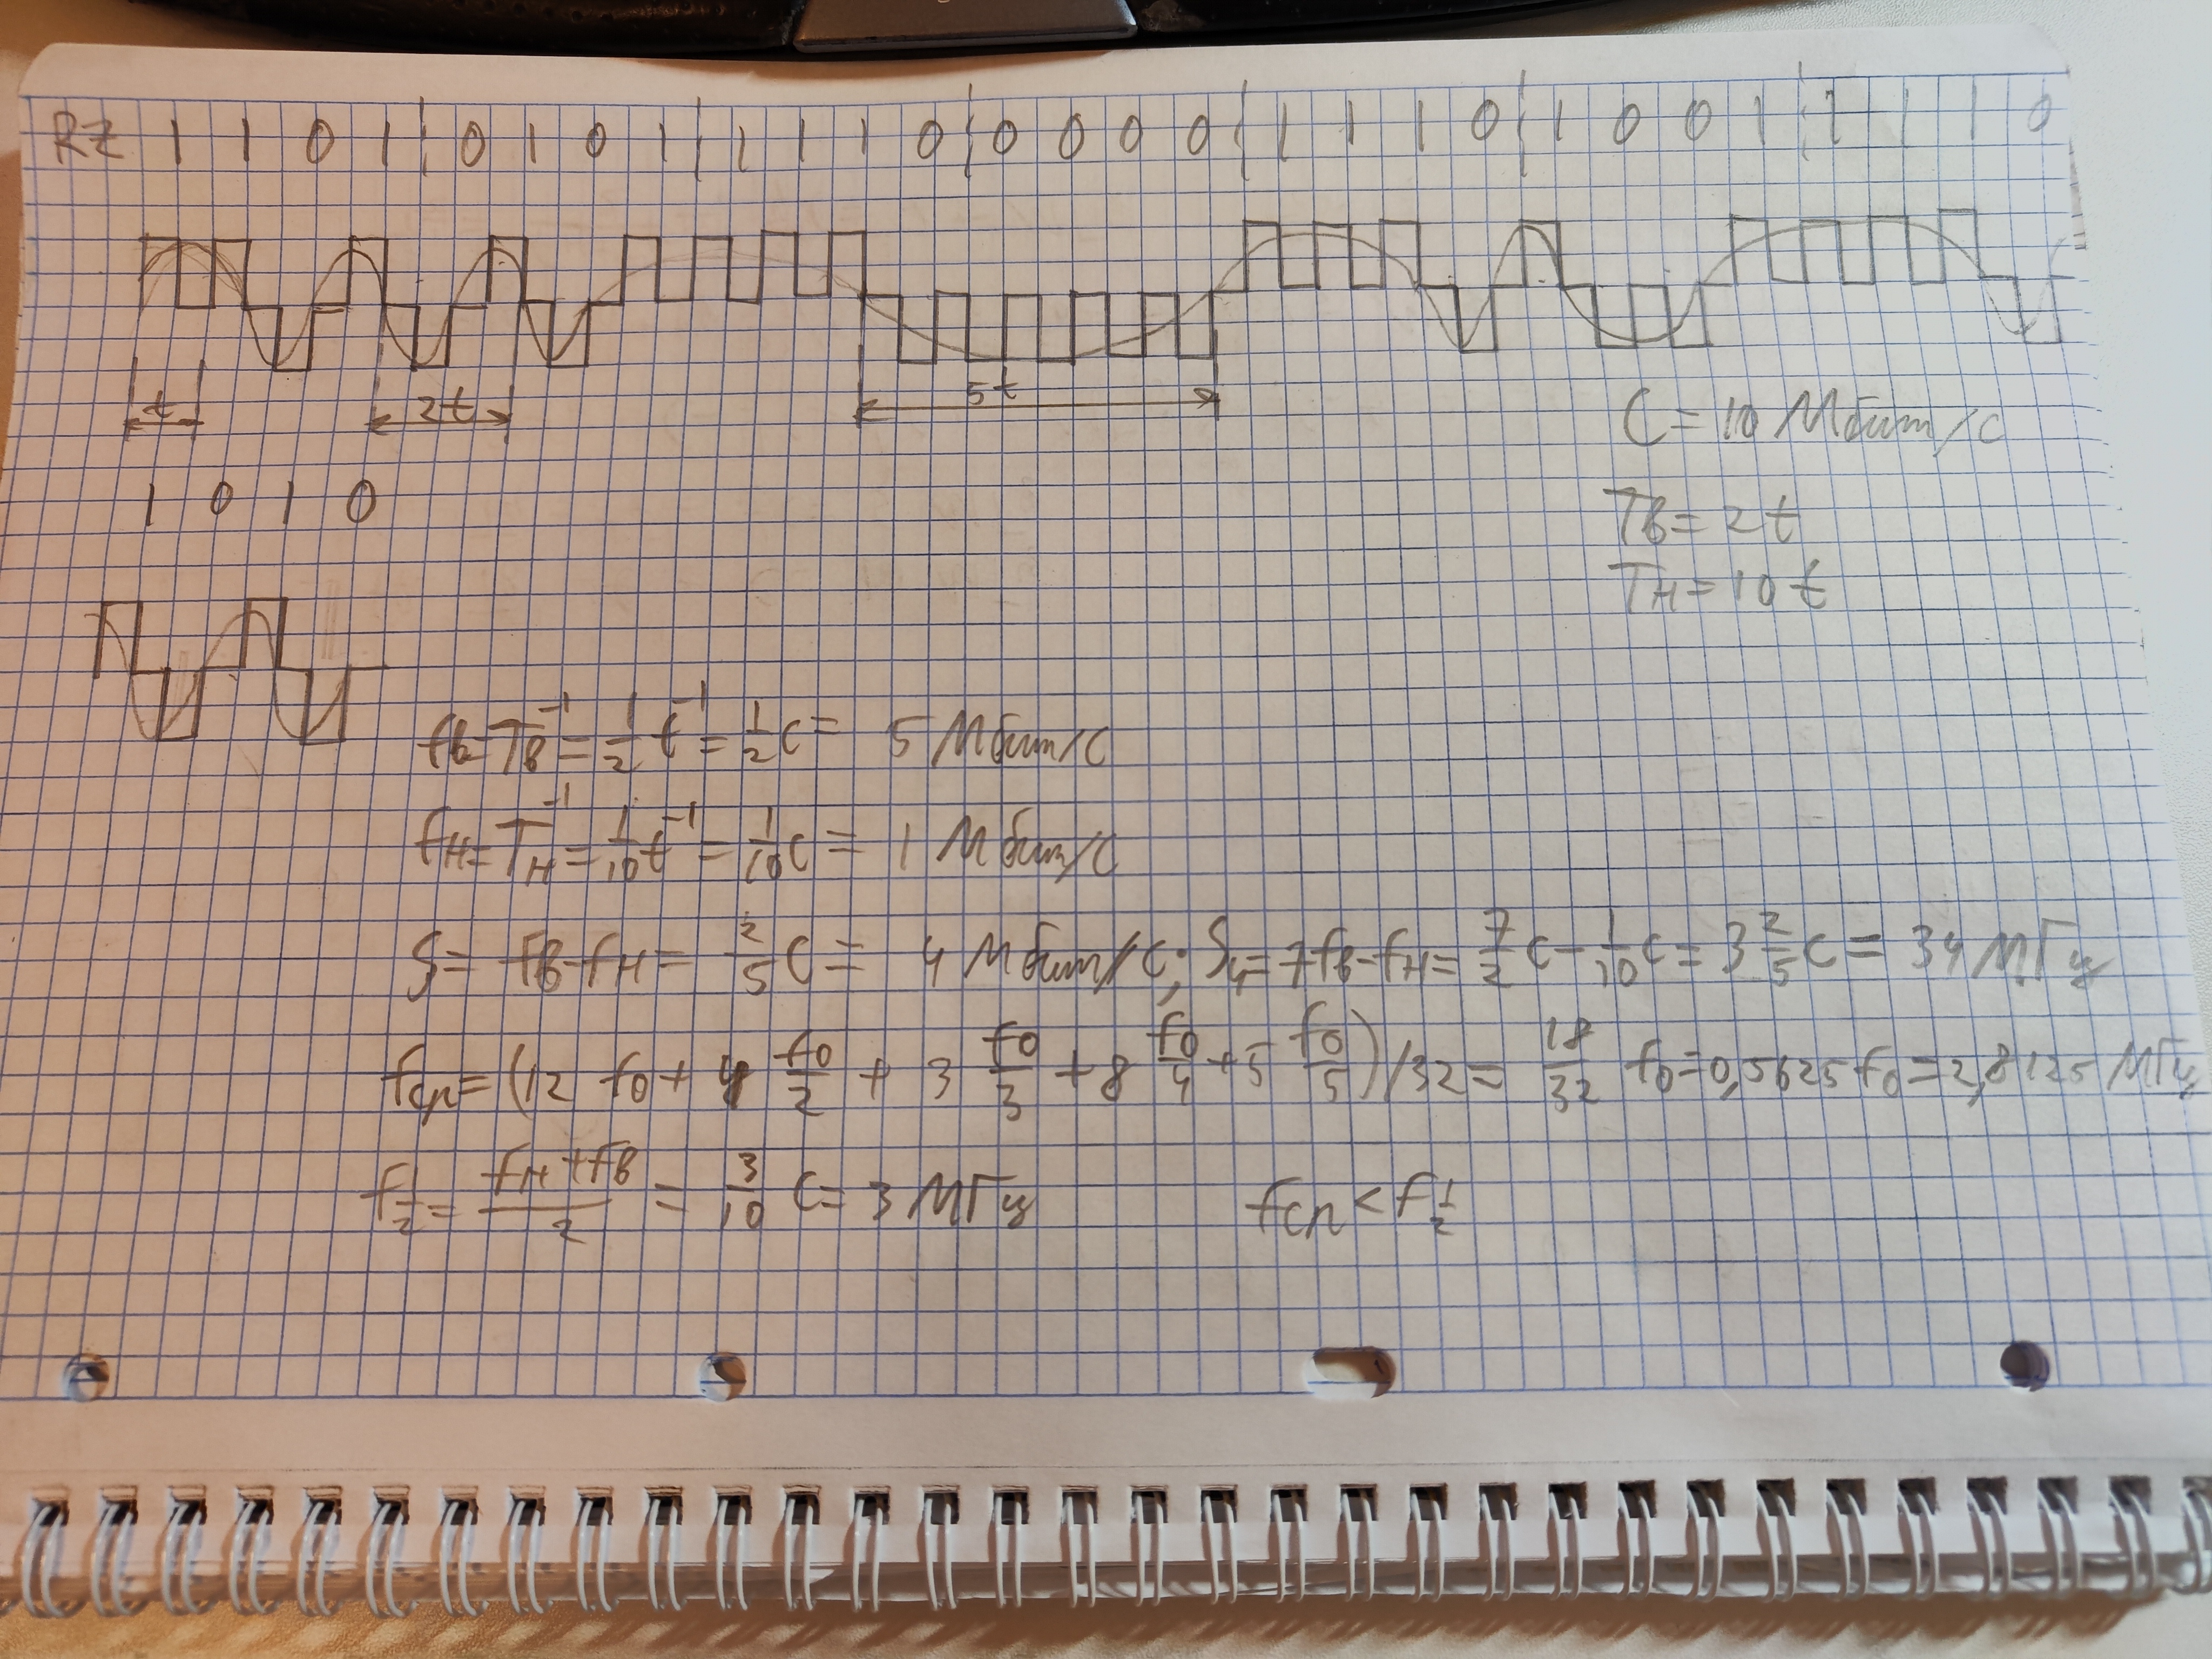 RZ 1 1 0 1 | 0 1 0 1 | 1 1 1 0 | 0 0 0 0 | 1 1 1 0 | 1 0 0 1 | 1 1 1 0
t 2t 5t
C = 10 Мбит/с
1 0 1 0
Tв = 2t
Tн = 10t
fв = Tв⁻¹ = 1/2 t⁻¹ = 1/2 C = 5 Мбит/с
fн = Tн⁻¹ = 1/10 t⁻¹ = 1/10 C = 1 Мбит/с
S = fв - fн = 2/5 C = 4 Мбит/с; S₄ = 7fв - fн = 7/2 C - 1/10 C = 3 2/5 C = 34 МГц
fср = (12 f0 + 4 f0/2 + 3 f0/3 + 8 f0/4 + 5 f0/5)/32 = 18/32 f0 = 0,5625 f0 = 2,8125 МГц
f1/2 = (fн + fв)/2 = 3/10 C = 3 МГц fср < f1/2